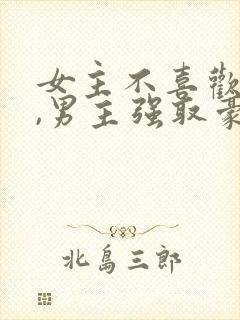 女主不喜歡
,男主强取豪
北島三郎